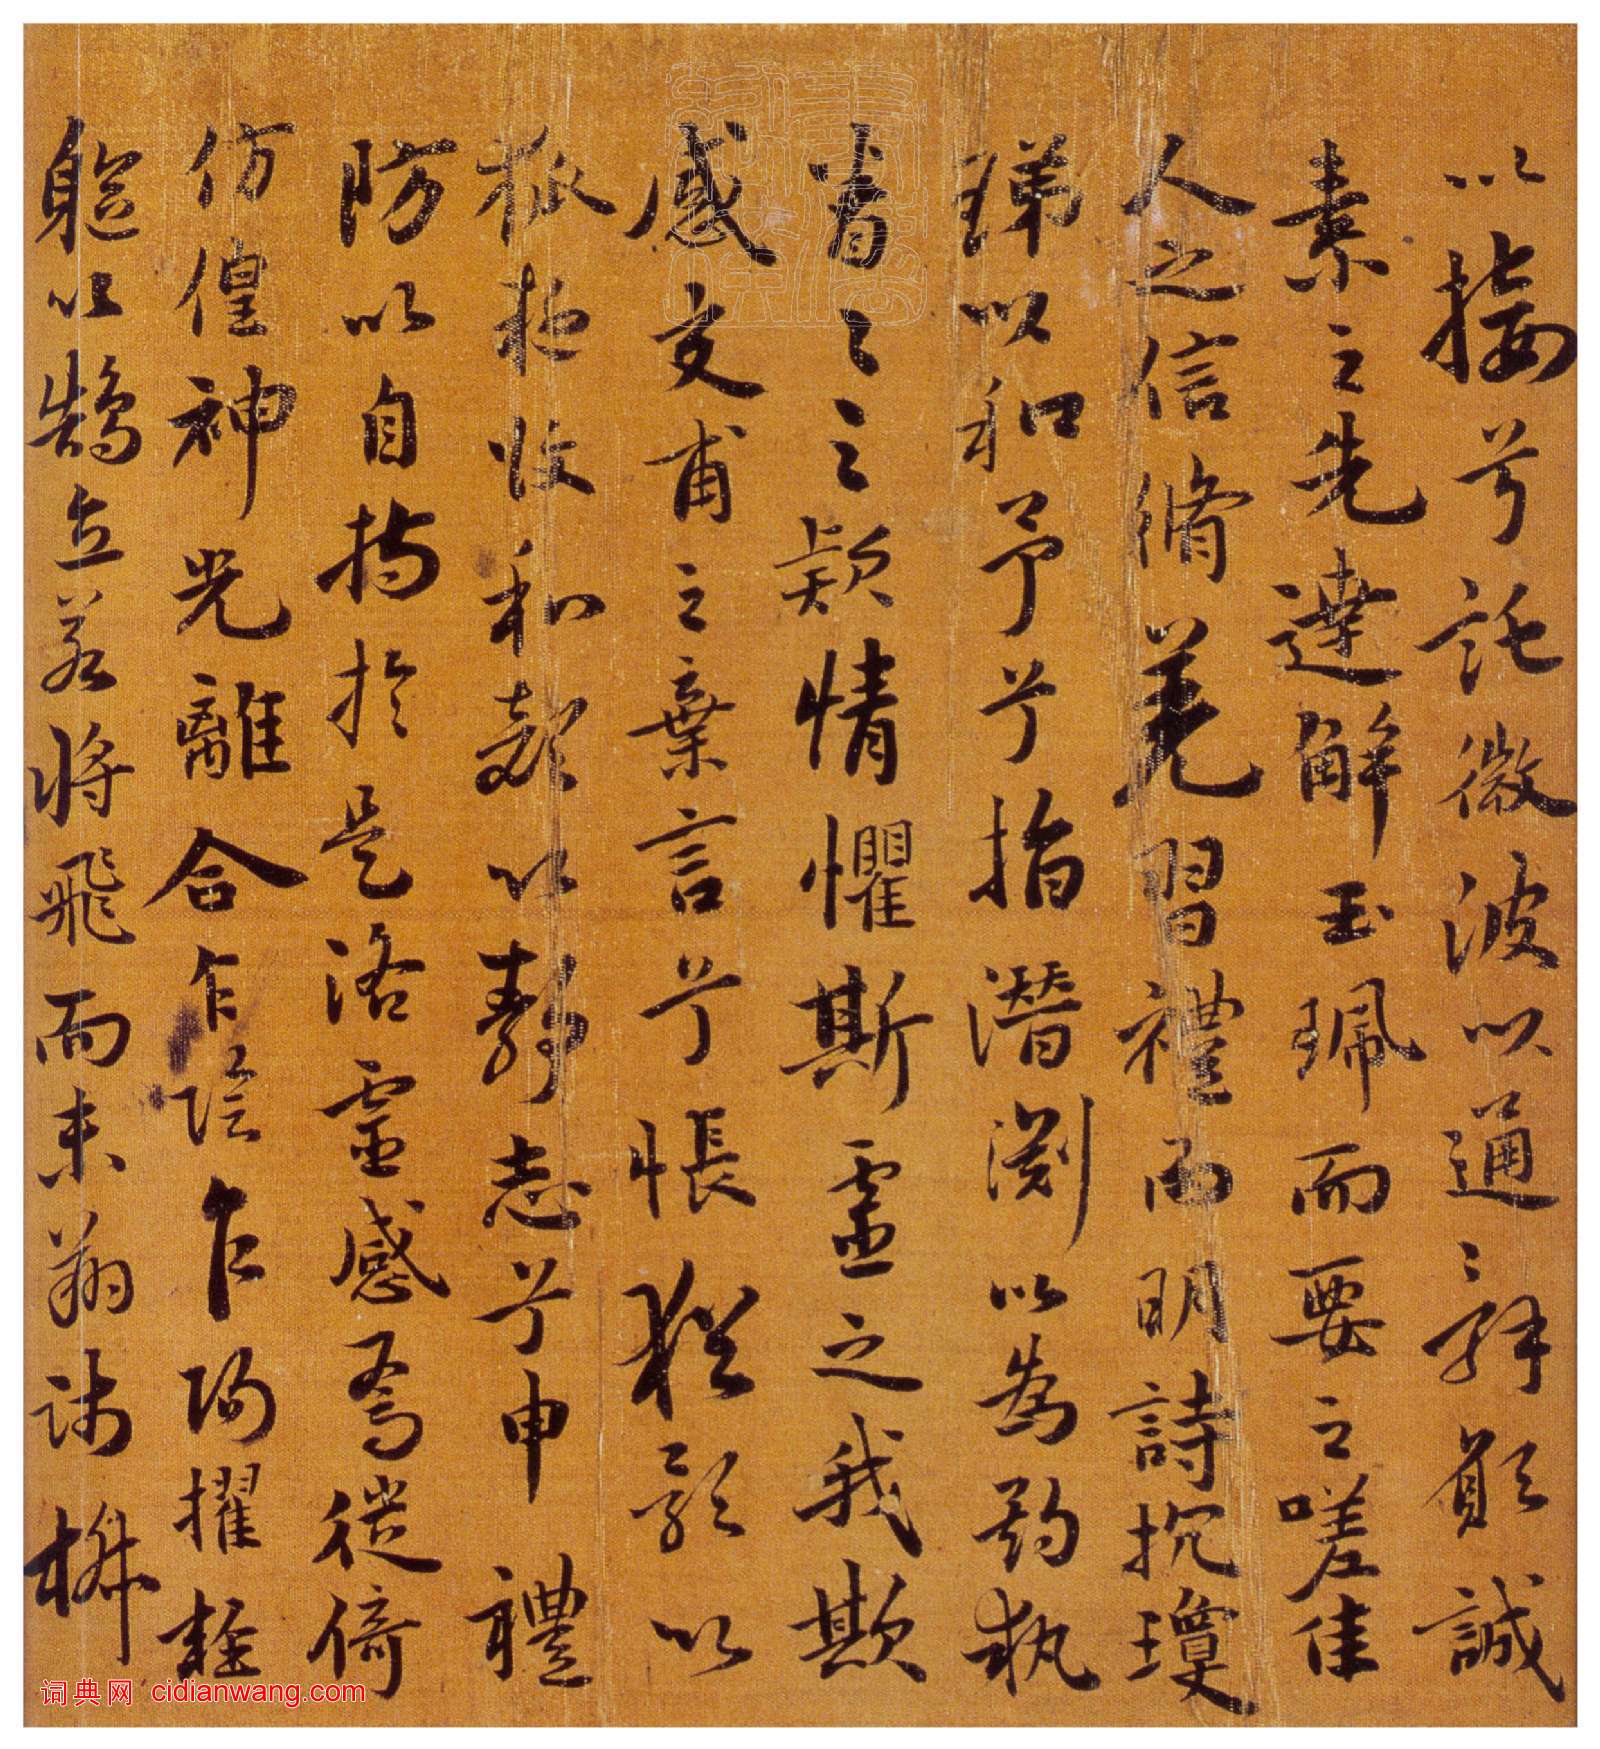 以接兮託微波以通〻辭願誠
素之先達解玉珮而要之嗟佳
人之信脩羌習禮而明詩抗瓊
珶以和予兮指潛渕以為期執
眷〻之款情懼斯靈之我欺
感交甫之棄言兮悵猶豫以
狐疑收和顏以靜志兮申禮
防以自持於是洛靈感焉徙倚
仿偟神光離合乍陰乍陽擢輕
軀以鵠立若將飛而未翔踐椒
词典网 cidianwang.com